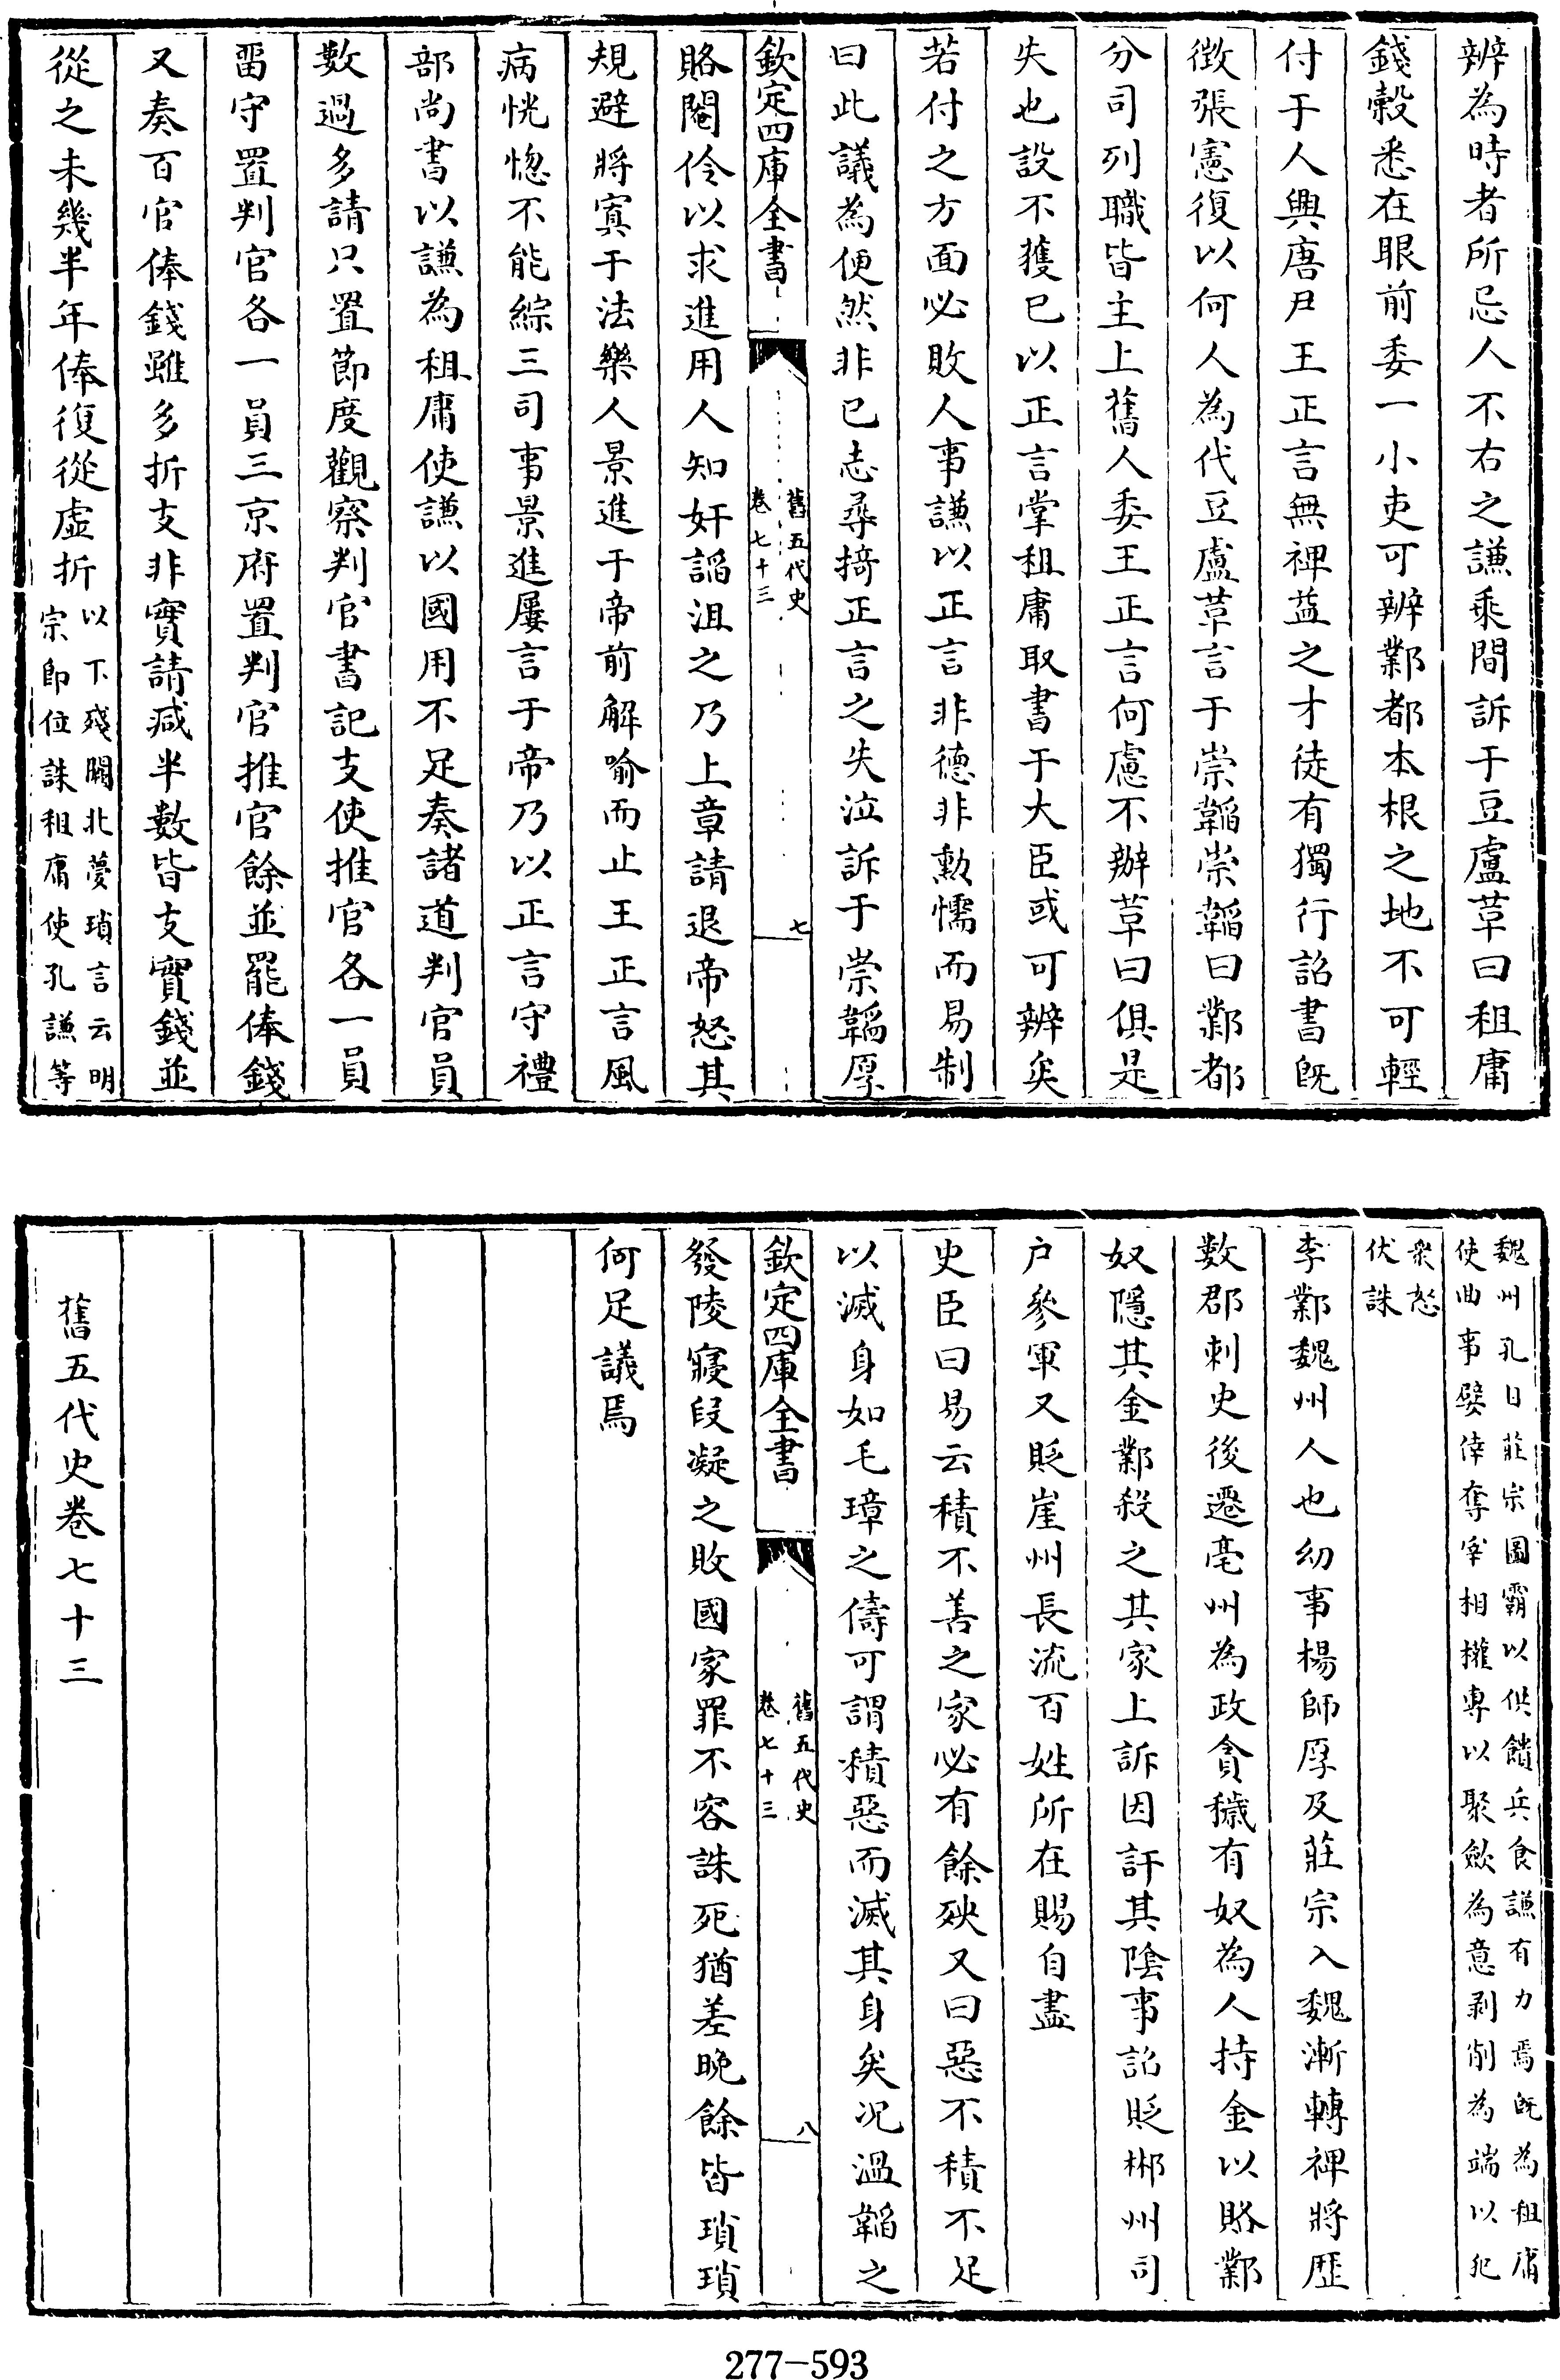 辨為時者所忌人不右之謙乘間訴于豆盧革曰租庸
錢穀悉在眼前委一小吏可辨鄴都本根之地不可輕
付于人興唐尹王正言無裨益之才徒有獨行詔書旣
徴張憲復以何人為代豆盧革言于崇韜崇韜曰鄴都
分司列職皆主上舊人委王正言何慮不辦革曰俱是
失也設不獲已以正言掌租庸取書于大臣或可辨矣
若付之方面必敗人事謙以正言非德非勲懦而易制
曰此議為便然非已志尋掎正言之失泣訴于崇韜厚
欽定四庫全書
舊五代史
卷七十三
七
賂閹伶以求進用人知奸謟沮之乃上章請退帝怒其
規避將寘于法樂人景進于帝前解喻而止王正言風
病恍惚不能綜三司事景進屢言于帝乃以正言守禮
部尚書以謙為租庸使謙以國用不足奏諸道判官員
數過多請只置節度觀察判官書記支使推官各一員
畱守置判官各一員三京府置判官推官餘並罷俸錢
又奏百官俸錢雖多折支非實請減半數皆支實錢並
從之未幾半年俸復從虛折
以下殘闕北夢瑣言云明
宗即位誅租庸使孔謙等
魏州孔目莊宗圖霸以供饋兵食謙有力焉旣為租庸
使曲事嬖倖奪宰相權專以聚歛為意剥削為端以犯
衆怒
伏誅
李鄴魏州人也幼事楊師厚及莊宗入魏漸轉裨將歷
數郡刺史後遷亳州為政貪穢有奴為人持金以賂鄴
奴隱其金鄴殺之其家上訴因訐其陰事詔貶郴州司
户參軍又貶崖州長流百姓所在賜自盡
史臣曰易云積不善之家必有餘殃又曰惡不積不足
以滅身如毛璋之儔可謂積惡而滅其身矣况溫韜之
欽定四庫全書
舊五代史
卷七十三
八
發陵寢段凝之敗國家罪不容誅死猶差晚餘皆瑣瑣
何足議焉
舊五代史卷七十三
277-593